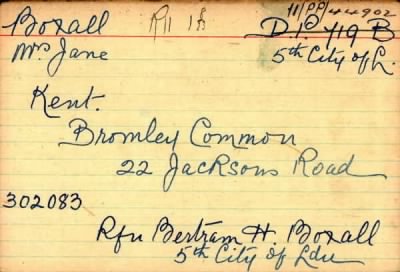 11/PP/44902
Boxall R11 1h D.P. 719 B
Mrs Jane 5th City of L.
Kent.
Bromley Common
22 Jacksons Road
302083
Rfn Bertram H. Boxall
5th City of Ldn